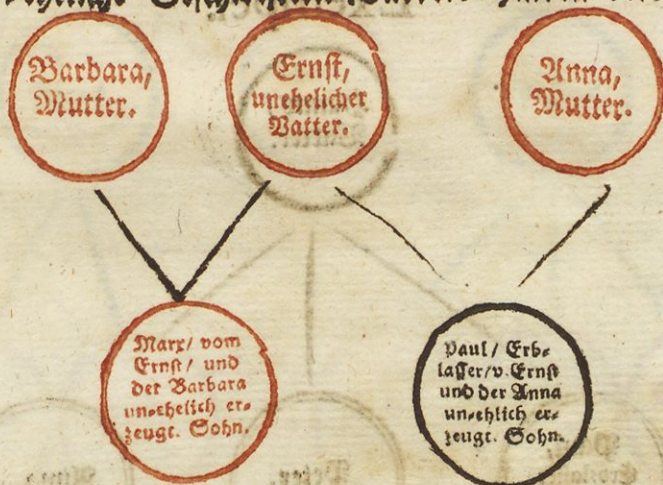 Barbara,
Mutter.
Ernst,
unehelicher
Vatter.
Anna,
Mutter.
Marx/ vom
Ernst/ und
der Barbara
un-ehelich er-
zeugt. Sohn.
Paul/ Erb-
lasser/v. Ernst
und der Anna
un-ehlich er-
zeugt. Sohn.